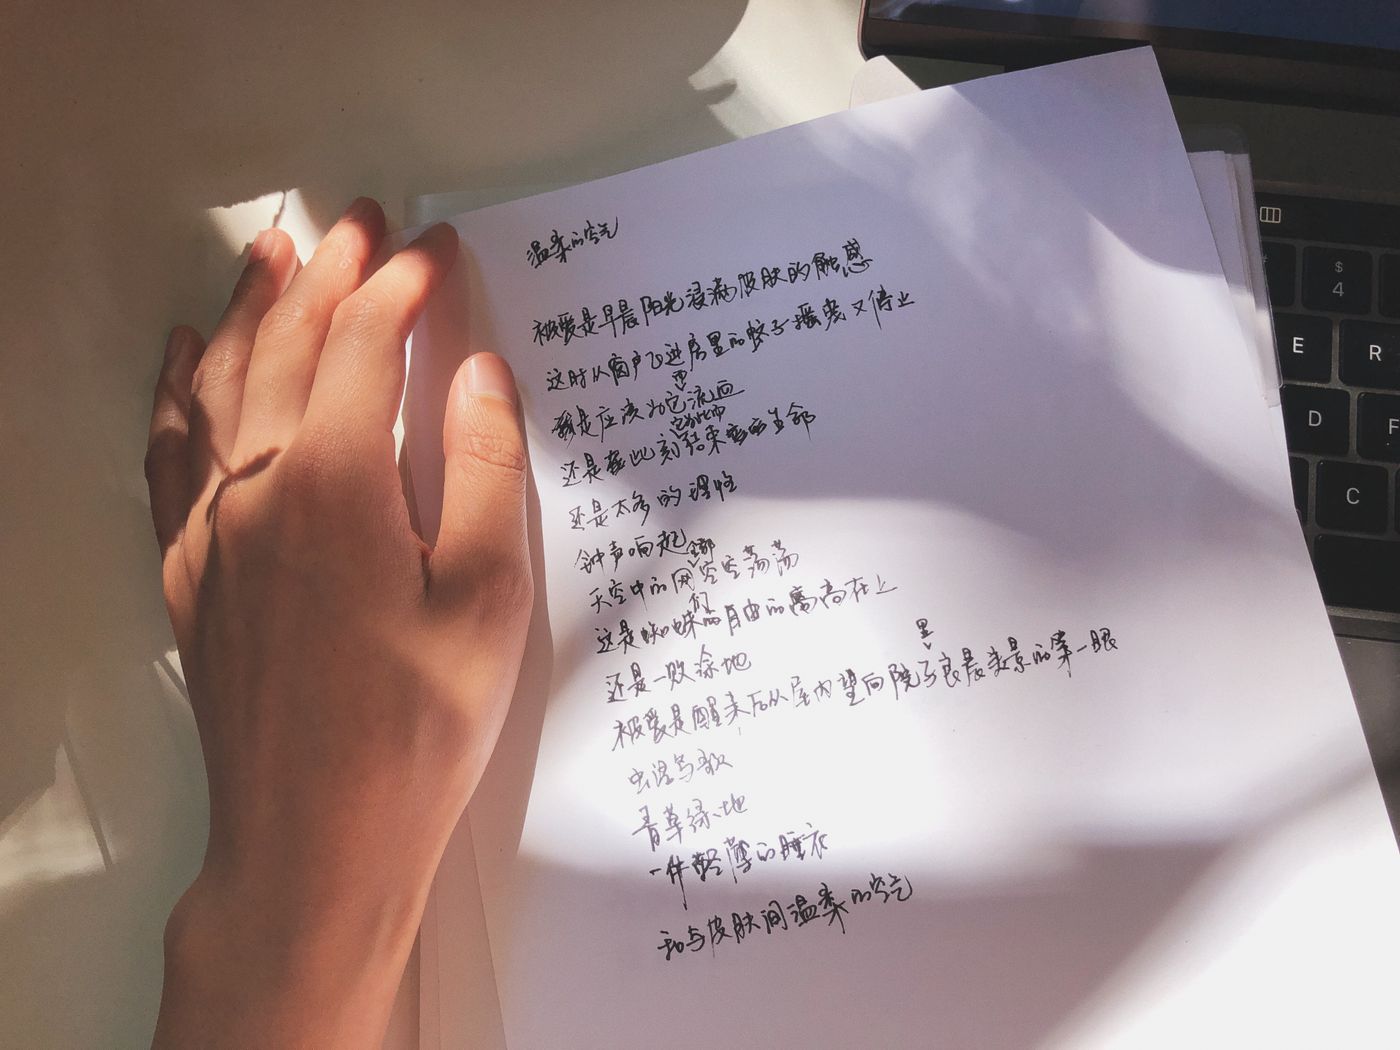 温柔的空气
被爱是早晨阳光浸满皮肤的触感
这时从窗户飞进房里的蚊子摇曳又停止
我是应该为它而流血
还是在此刻结束它如此的生命
还是太多的理性
钟声响起
天空中的网全部空空荡荡
这是蜘蛛们自由的高高在上
还是一败涂地
被爱是醒来后从屋内望向院子里良辰美景的第一眼
虫语鸟歌
青草绿地
一件轻薄的睡衣
和与皮肤间温柔的空气
$
4
E
R
D
F
C